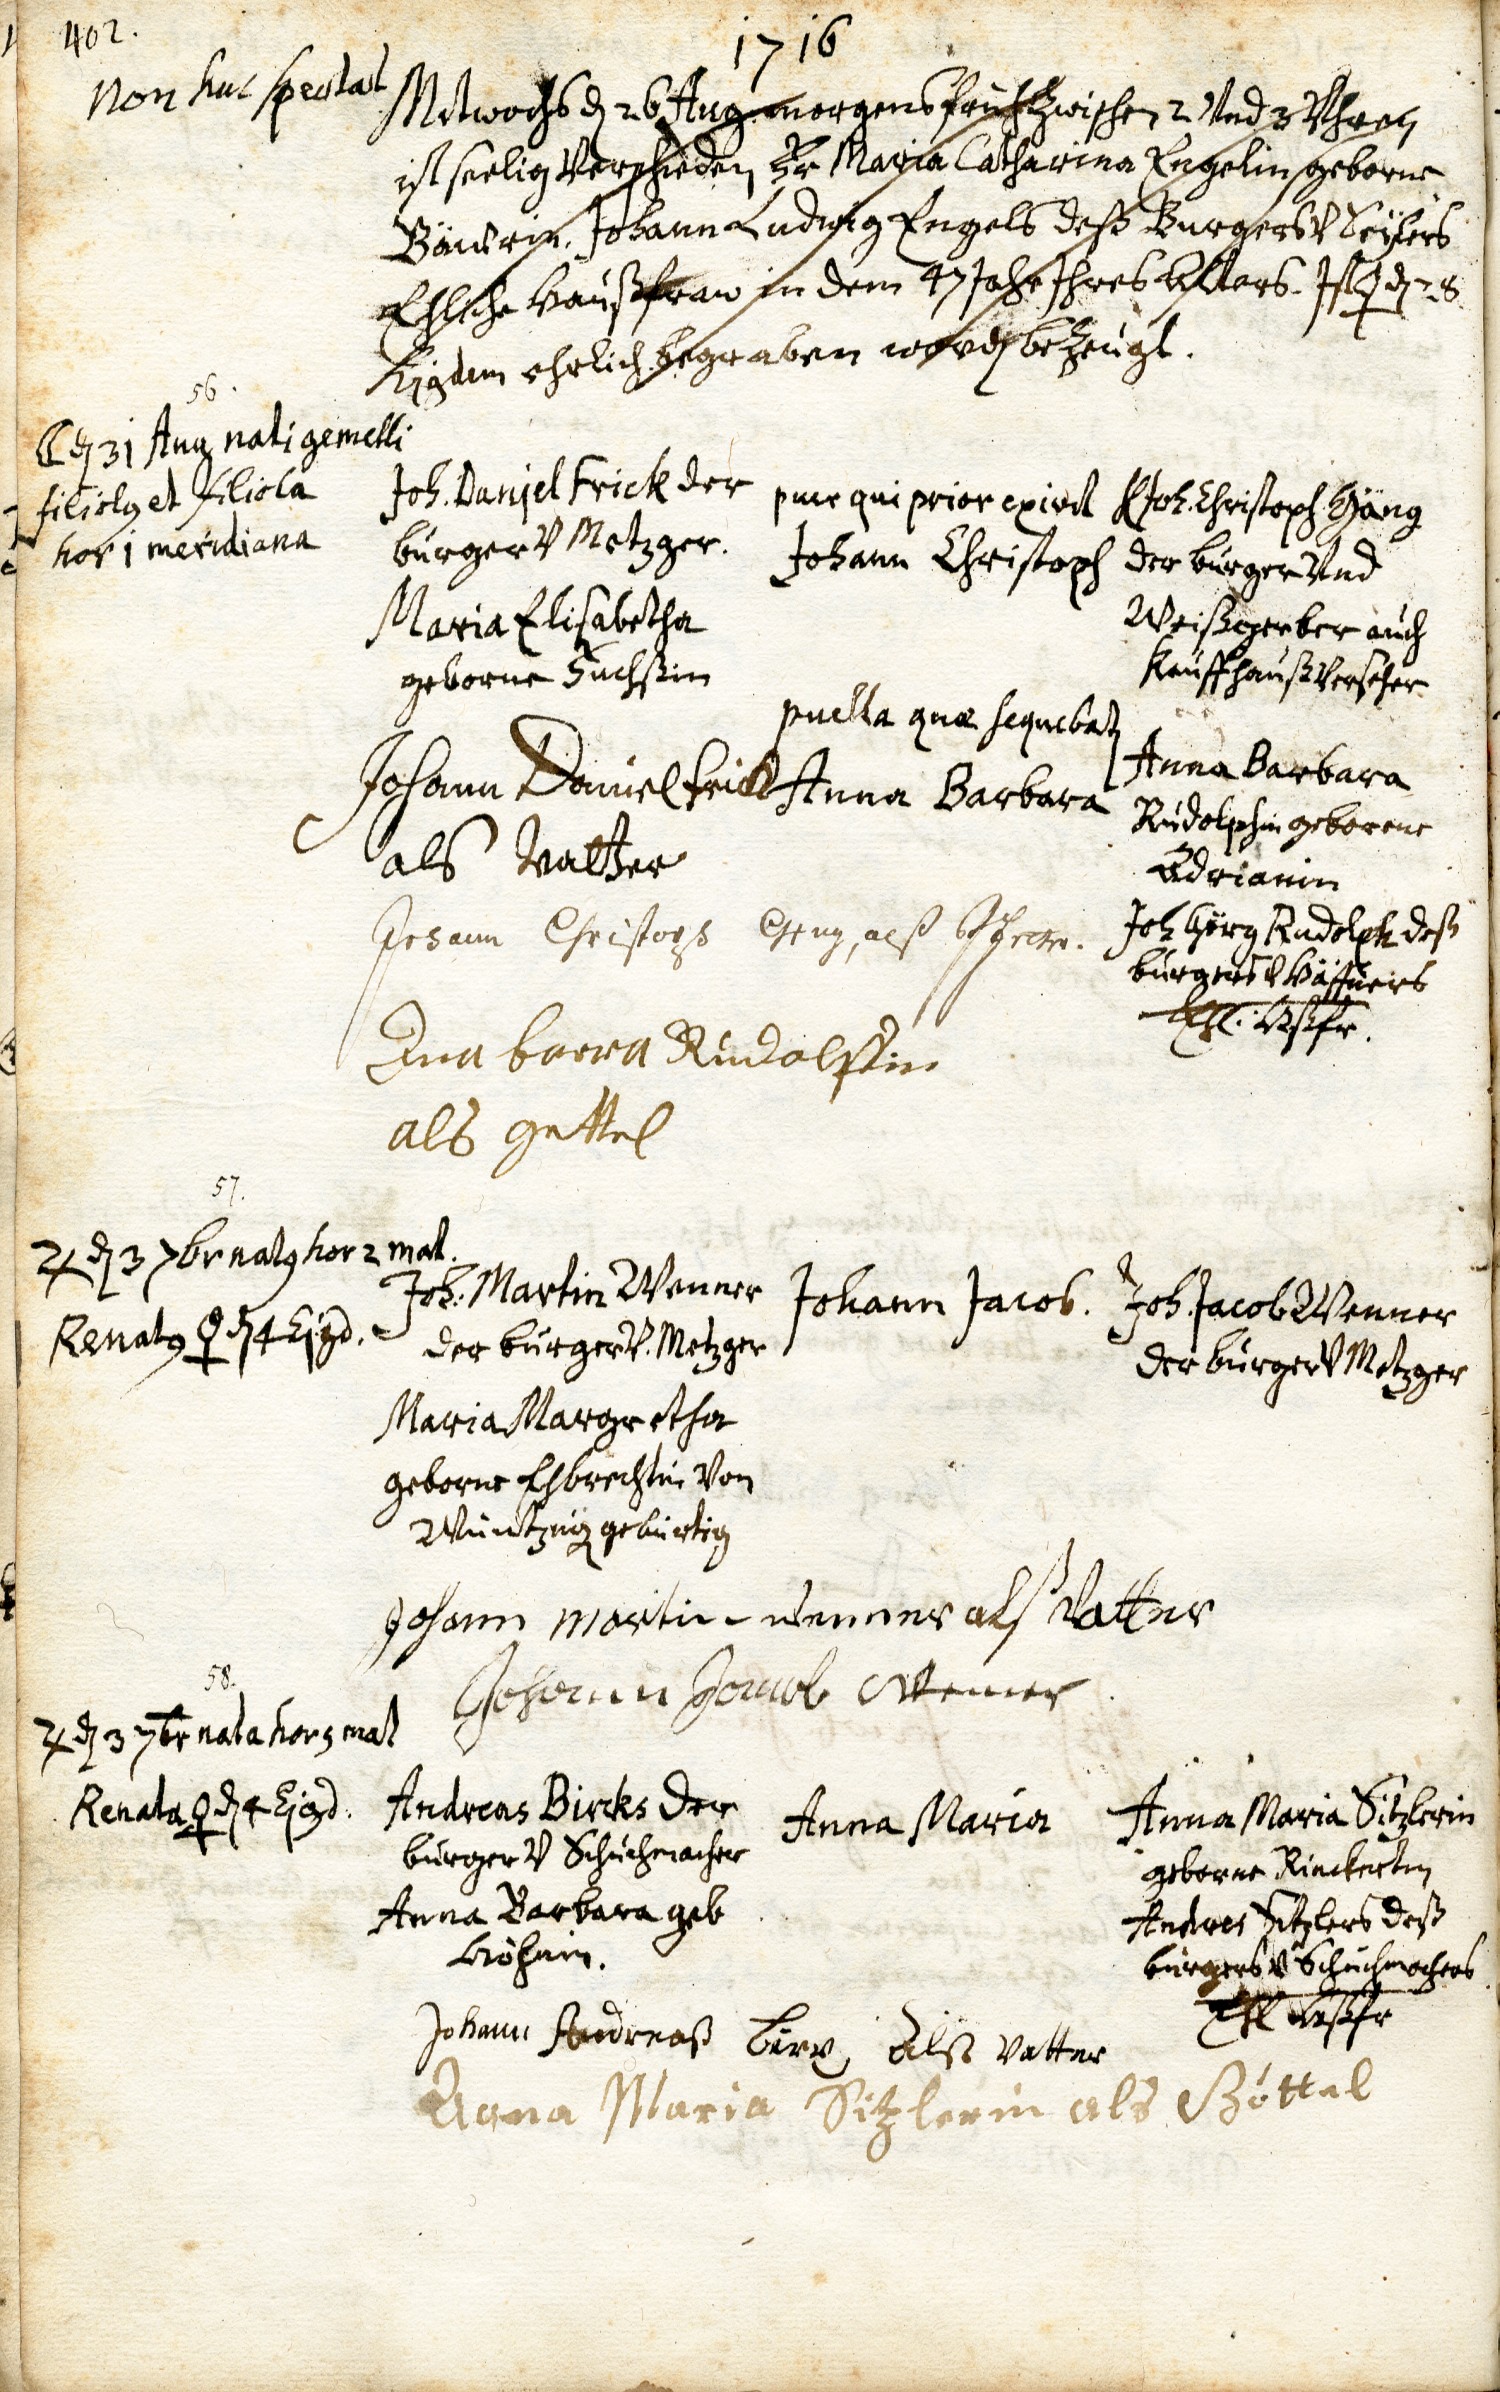 402.
1716
Non huc spectat
Mitwochs d 26 Aug. morgens früh zwischen 2 Und 3 Uhren
ist seelig Verschieden Fr Maria Catharina Engelin geborne
Bäurin, Johann Ludwig Engels deß Burgers V Seÿlers
Ehliche haußfraw in dem 47 Jahr Ihres Alters. Ist ♀ d 28
Ejgdem ehrlich begraben word bezeugt.
56.
☾ d 31 Aug nati gemelli
filiolg et filiola
hor 1 meridiana
Joh. Daniel Frick der
burger V Metzger.
Maria Elisabetha
geborne Fuchßin
puer qui prior exivit
Johann Christoph
H Joh. Christoph Gäng
der burger Und
Weißgerber auch
Kauffhauß Verseher
puella quæ sequebat
Anna Barbara
Anna Barbara
Rudolphin geborene
Adrianin
Joh Görg Rudolph deß
burgers V Häffners
Ehl. Hßfr.
Johann Daniel Frick
als Vatter
Johann Christoph Geng, alß
Ana barra Rudolffin
als gettel
57.
♃ d 3 7br natg hor 2 mat.
Renatg ♀ d 4 Ejgd.
Joh. Martin Wenner
der burger V. Metzger
Maria Margretha
geborne Ehbrechtin Von
gebürtig
Johann Jacob.
Joh. Jacob Wenner
der burger V Metzger
Johann Martin wenner alß Vatter
Johann Jacob Wenner
58.
♃ d 3 7br nata hor 5 mat
Renata ♀ d 4 Ejgd.
Andreas Bircks der
burger V Schuchmacher
Anna Barbara geb
Anna Maria
Anna Maria Sitzlerin
geborne Rinckertin
Andres Sitzlers deß
burgers V Schuchmachers
Ehl Hßfr
Johann Andreaß Alß Vatter
Anna Maria Sitzlerin als Göttel